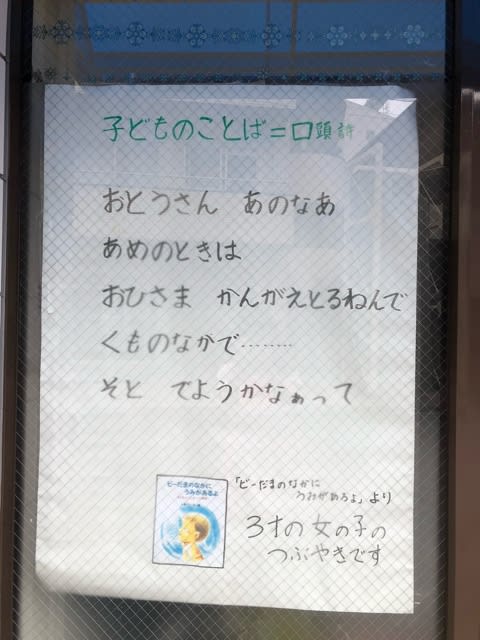 子どものことば=口頭詩
おとうさん あのなあ
あめのときは
おひさま かんがえとるねんで
くものなかで………
そと でようかなぁって
ビーだまのなかに
うみがあるよ
「ビーだまのなかに
うみがあるよ」より
3才の女の子の
つぶやきです